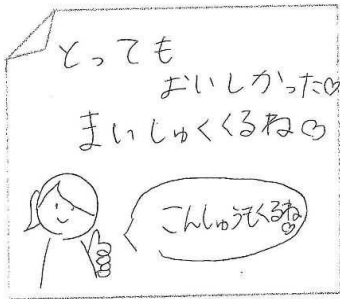 とっても
おいしかった♡
まいしゅくくるね♡
こんしゅうもくるね♡